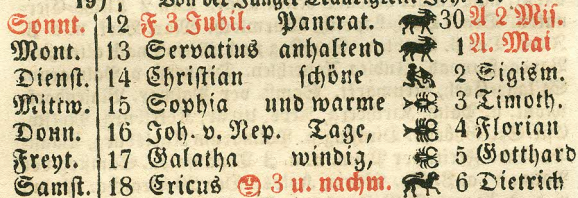 Sonnt. 12 F 3 Jubil. Pancrat. 30 A 2 Mis.
Mont. 13 Servatius anhaltend 1 A. Mai
Dienst. 14 Christian schöne 2 Sigism.
Mittw. 15 Sophia und warme 3 Timoth.
Donn. 16 Joh. v. Nep. Tage, 4 Florian
Freyt. 17 Galatha windig, 5 Gotthard
Samst. 18 Ericus 3 u. nachm. 6 Dietrich